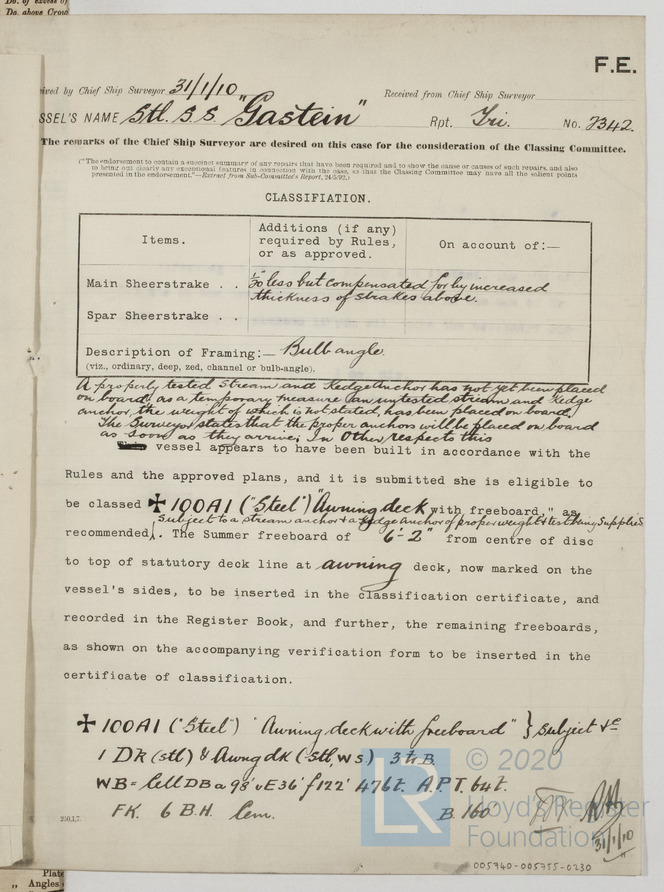 Do. above Crow
F.E.
ived by Chief Ship Surveyor 31/1/10 Received from Chief Ship Surveyor
SSEL'S NAME Stl. S.S. "Gastein" Rpt. Tri. No. 7342.
The remarks of the Chief Ship Surveyor are desired on this case for the consideration of the Classing Committee.
("The endorsement to contain a succinct summary of any repairs that have been required and to show the cause or causes of such repairs, and also
to bring out clearly any exceptional features in connection with the case, so that the Classing Committee may have all the salient points
presented in the endorsement."—Extract from Sub-Committee's Report, 24/5/92.)
CLASSIFIATION.
Items. Additions (if any) required by Rules, or as approved. On account of:—
Main Sheerstrake . . 1/20" less but compensated for by increased
thickness of strakes above.
Spar Sheerstrake . .
Description of Framing:— Bulb angle
(viz., ordinary, deep, zed, channel or bulb-angle).
A properly tested Stream and Kedge Anchor has not yet been placed
on board, as a temporary measure an untested stream and Kedge
anchor, the weight of which is not stated, has been placed on board,
The Surveyor states that the proper anchors will be placed on board
as soon as they arrive; In Other respects this
vessel appears to have been built in accordance with the
Rules and the approved plans, and it is submitted she is eligible to
be classed ✠ 100A1 ("Steel") "Awning deck with freeboard," as
subject to a stream anchor & a Kedge Anchor of proper weight & test being supplied
recommended. The Summer freeboard of 6'-2" from centre of disc
to top of statutory deck line at awning deck, now marked on the
vessel's sides, to be inserted in the classification certificate, and
recorded in the Register Book, and further, the remaining freeboards,
as shown on the accompanying verification form to be inserted in the
certificate of classification.
✠ 100A1 ("Steel") "Awning deck with freeboard" } Subject &c
1 Dk (stl) & Awng dk (stl, ws) 3 tr B
WB = Cell DB a 98' u E 36' f 122' 476t. A.P.T. 64t.
FK. 6 B.H. Cem. B. 160
31/1/10
250,1,7.
© 2020
LR
Lloyd's Register
Foundation
005740-005755-0230
Plate
„ Angles